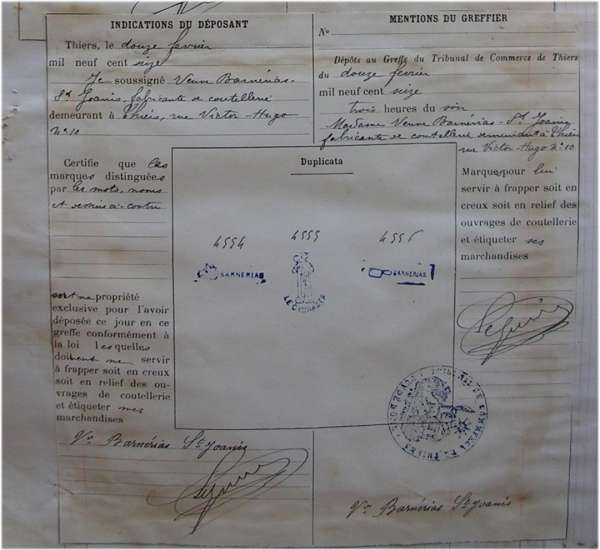 INDICATIONS DU DÉPOSANT
Thiers, le douze février
mil neuf cent seize
Je soussigné Veuve Barnérias-
St Joanis, fabricante de coutellerie
demeurant à Thiers, rue Victor-Hugo
No 10
Certifie que les
marques distinguées
par les mots, noms
et dessins ci-contre
sont ma propriété
exclusive pour l'avoir
déposée ce jour en ce
greffe conformément à
la loi lesquelles
doivent me servir
à frapper soit en creux
soit en relief des ou-
vrages de coutellerie
et étiqueter mes
marchandises
Vve Barnérias St Joanis
MENTIONS DU GREFFIER
No
Dépôts au Greffe du Tribunal de Commerce de Thiers
du douze février
mil neuf cent seize
trois heures du soir
Madame Veuve Barnérias-St Joanis
fabricante de coutellerie demeurant à Thiers
rue Victor-Hugo No 10
Marques pour lui
servir à frapper soit en
creux soit en relief des
ouvrages de coutellerie
et étiqueter ses
marchandises
Duplicata
4554 4555 4556
BARNERIAS
BARNERIAS
Vve Barnérias St Joanis